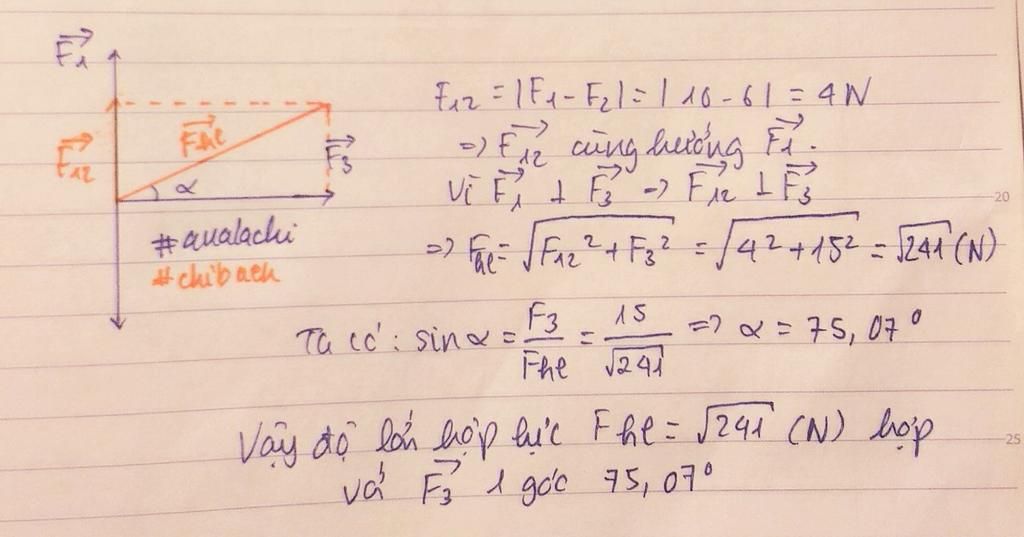 F₁→
F₁₂→
Fhl→
F₃→
α
#aualachi
#chibach
F₁₂ = |F₁ - F₂| = |10 - 6| = 4N
=> F₁₂→ cùng hướng F₁→.
Vì F₁→ ⊥ F₃→ => F₁₂→ ⊥ F₃→
=> Fhl = √(F₁₂² + F₃²) = √(4² + 15²) = √241 (N)
Ta có: sin α = F₃/Fhl = 15/√241 => α = 75,07°
Vậy độ lớn hợp lực Fhl = √241 (N) hợp
với F₃→ 1 góc 75,07°
20
25